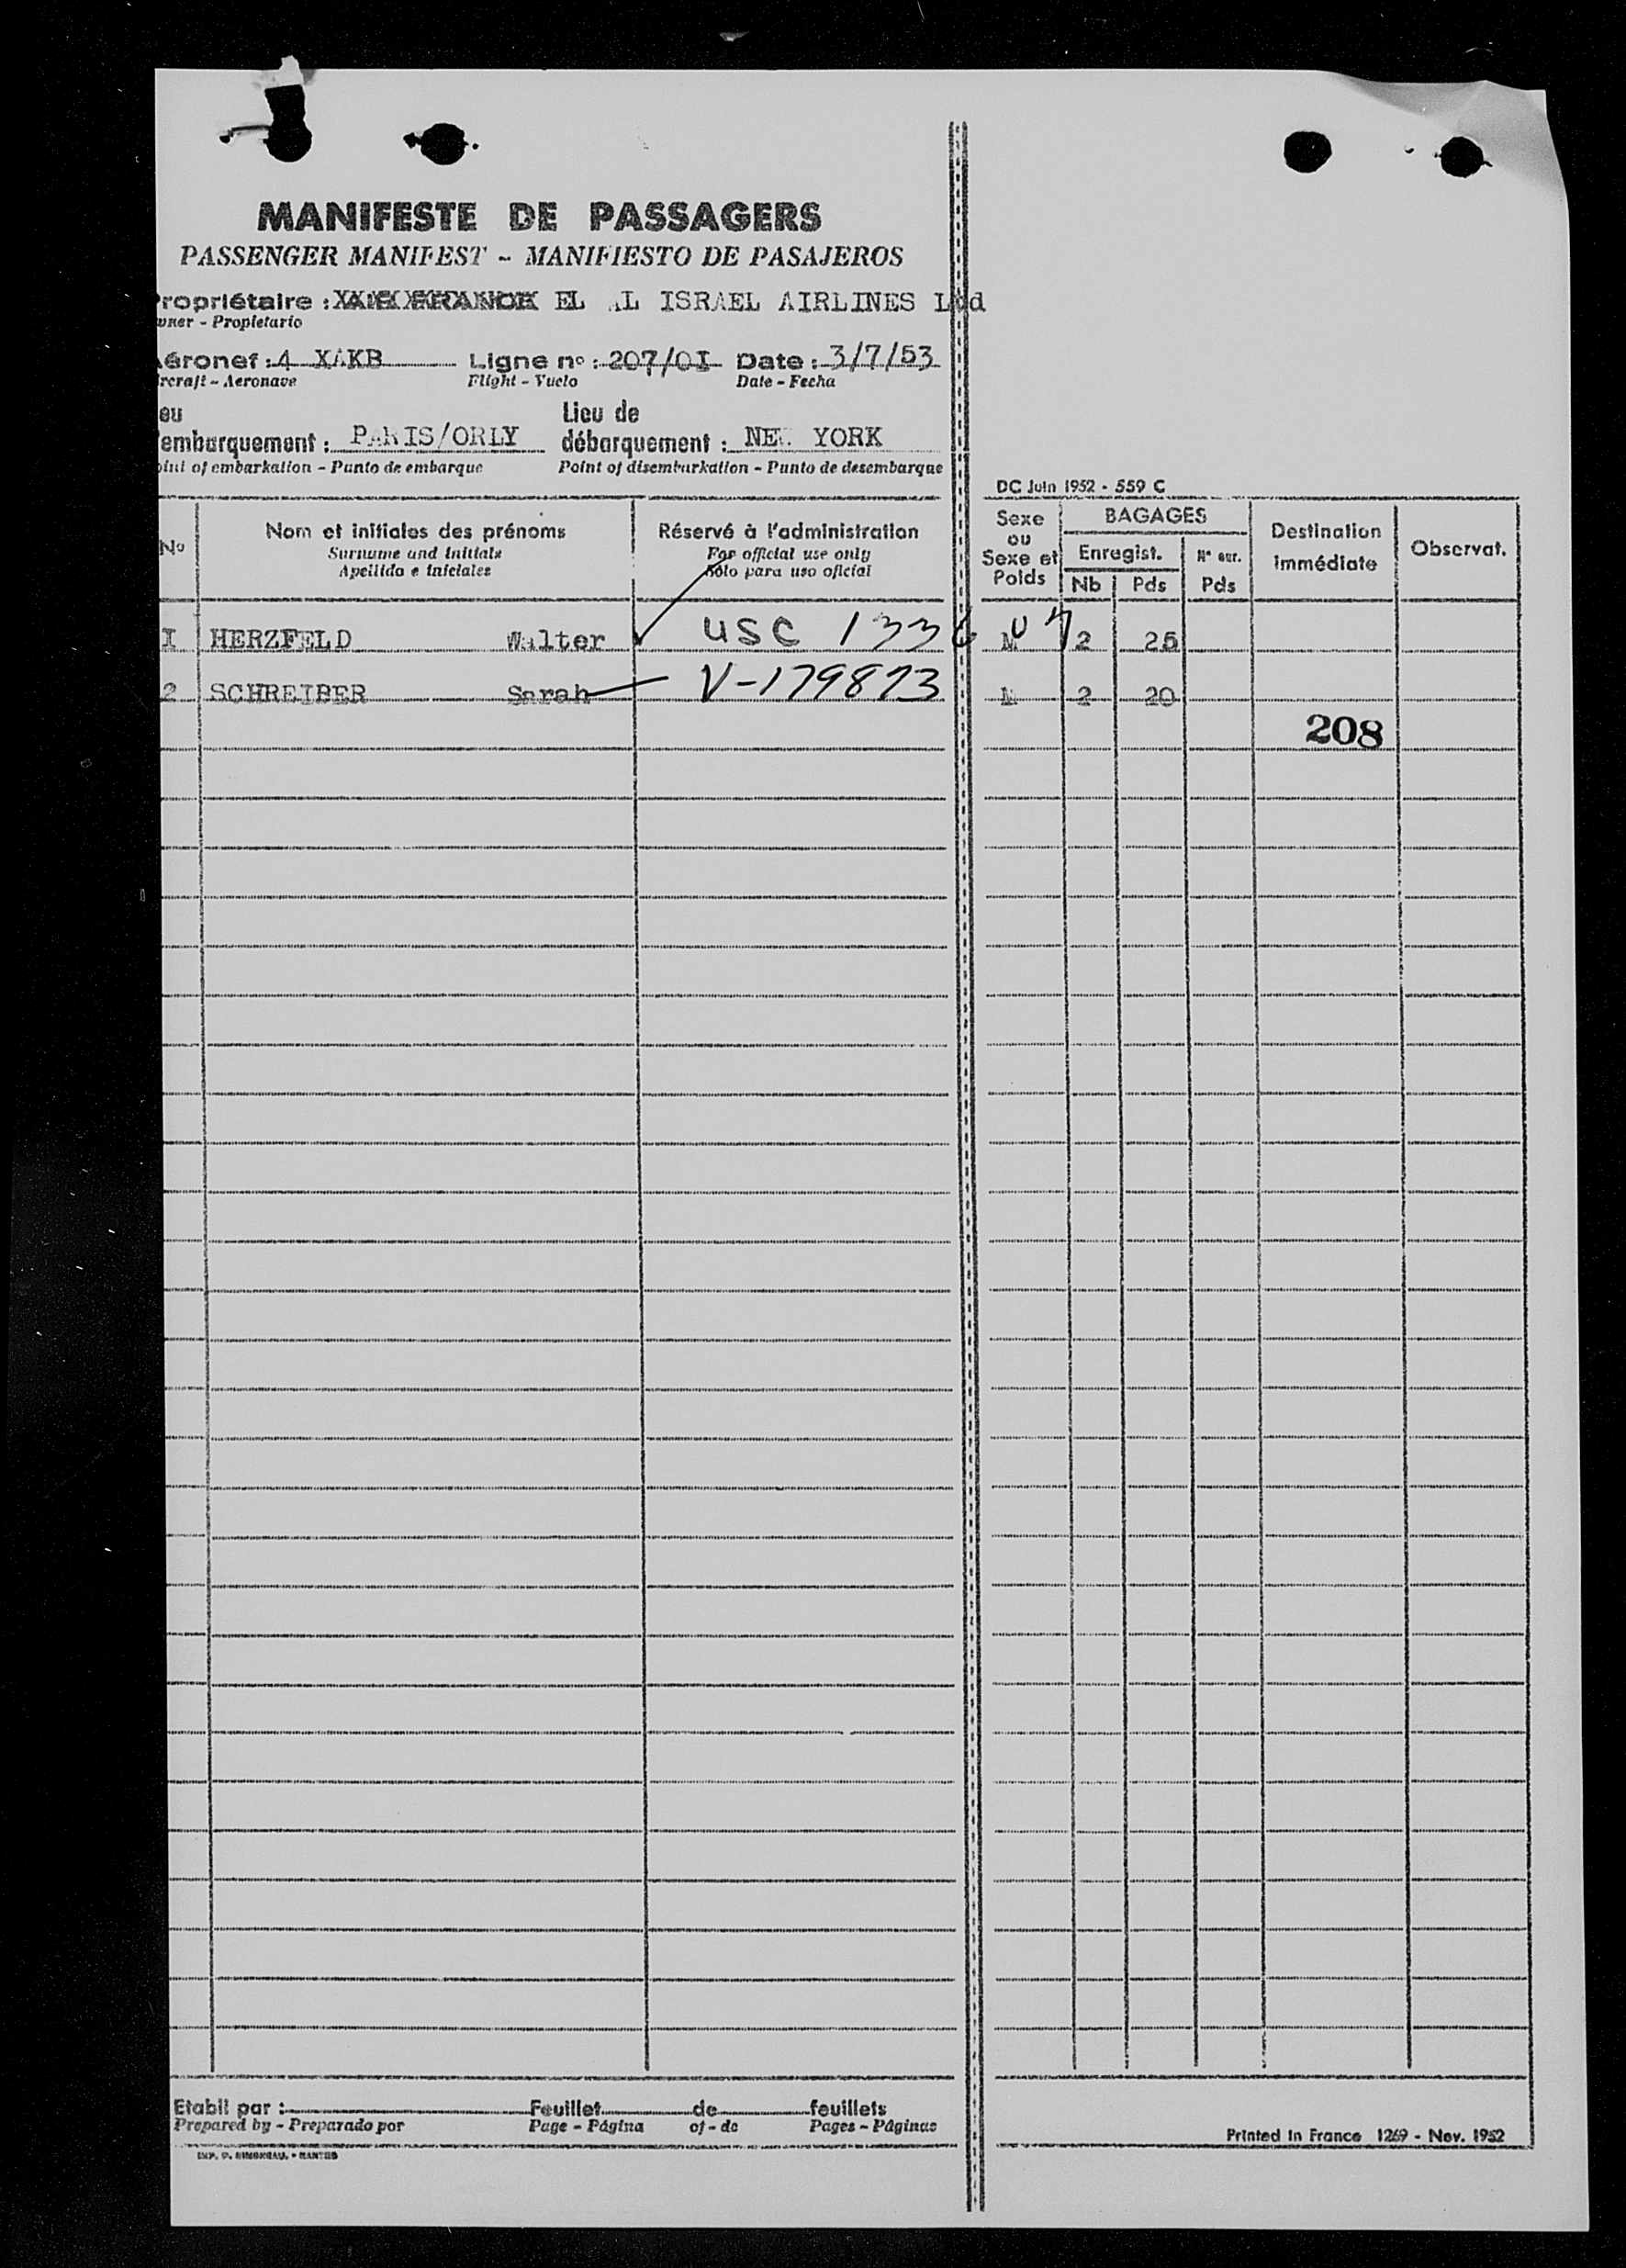 MANIFESTE DE PASSAGERS
PASSENGER MANIFEST - MANIFIESTO DE PASAJEROS
ropriétaire : EL AL ISRAEL AIRLINES Ltd
wner - Propietario
éronef : 4 XAKB Ligne nº : 207/01 Date : 3/7/53
rcraft - Aeronave Flight - Vuelo Date - Fecha
eu Lieu de
'embarquement : PARIS/ORLY débarquement : NEW YORK
oint of embarkation - Punto de embarque Point of disembarkation - Punto de desembarque
DC Juin 1952 - 559 C
Nº Nom et initiales des prénoms Réservé à l'administration
Surname and initials For official use only
Apellido e iniciales Sólo para uso oficial
Sexe ou Sexe et Poids BAGAGES Destination immédiate Observat.
Enregist. Nº sur.
Nb Pds Pds
I HERZFELD Walter USC 1336 U 4 M 2 25
2 SCHREIBER Sarah V-179873 M 2 20
208
Etabli par : Feuillet de feuillets
Prepared by - Preparado por Page - Página of - de Pages - Páginas
Printed in France 1269 - Nov. 1952